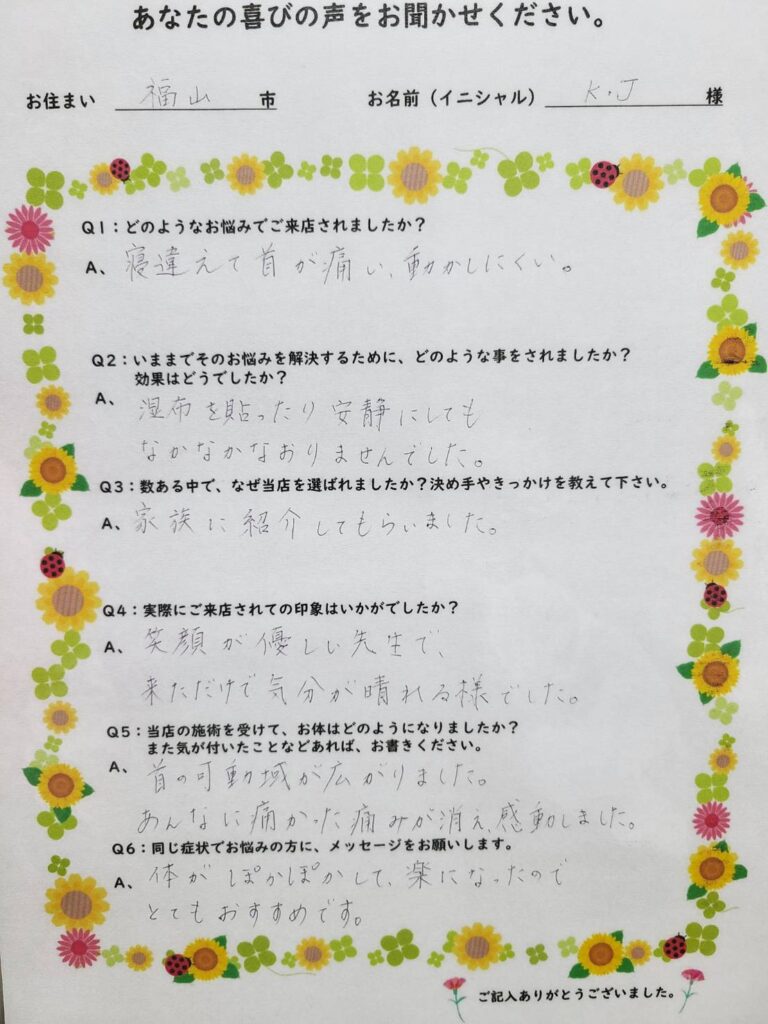 あなたの喜びの声をお聞かせください。
お住まい 福山 市 お名前（イニシャル） K・J 様
Q1：どのようなお悩みでご来店されましたか？
A、 寝違えて首が痛い、動かしにくい。
Q2：いままでそのお悩みを解決するために、どのような事をされましたか？
効果はどうでしたか？
A、 湿布を貼ったり安静にしても
なかなかなおりませんでした。
Q3：数ある中で、なぜ当店を選ばれましたか？決め手やきっかけを教えて下さい。
A、 家族に紹介してもらいました。
Q4：実際にご来店されての印象はいかがでしたか？
A、 笑顔が優しい先生で、
来ただけで気分が晴れる様でした。
Q5：当店の施術を受けて、お体はどのようになりましたか？
また気が付いたことなどあれば、お書きください。
A、 首の可動域が広がりました。
あんなに痛かった痛みが消え、感動しました。
Q6：同じ症状でお悩みの方に、メッセージをお願いします。
A、 体がぽかぽかして、楽になったので
とてもおすすめです。
ご記入ありがとうございました。